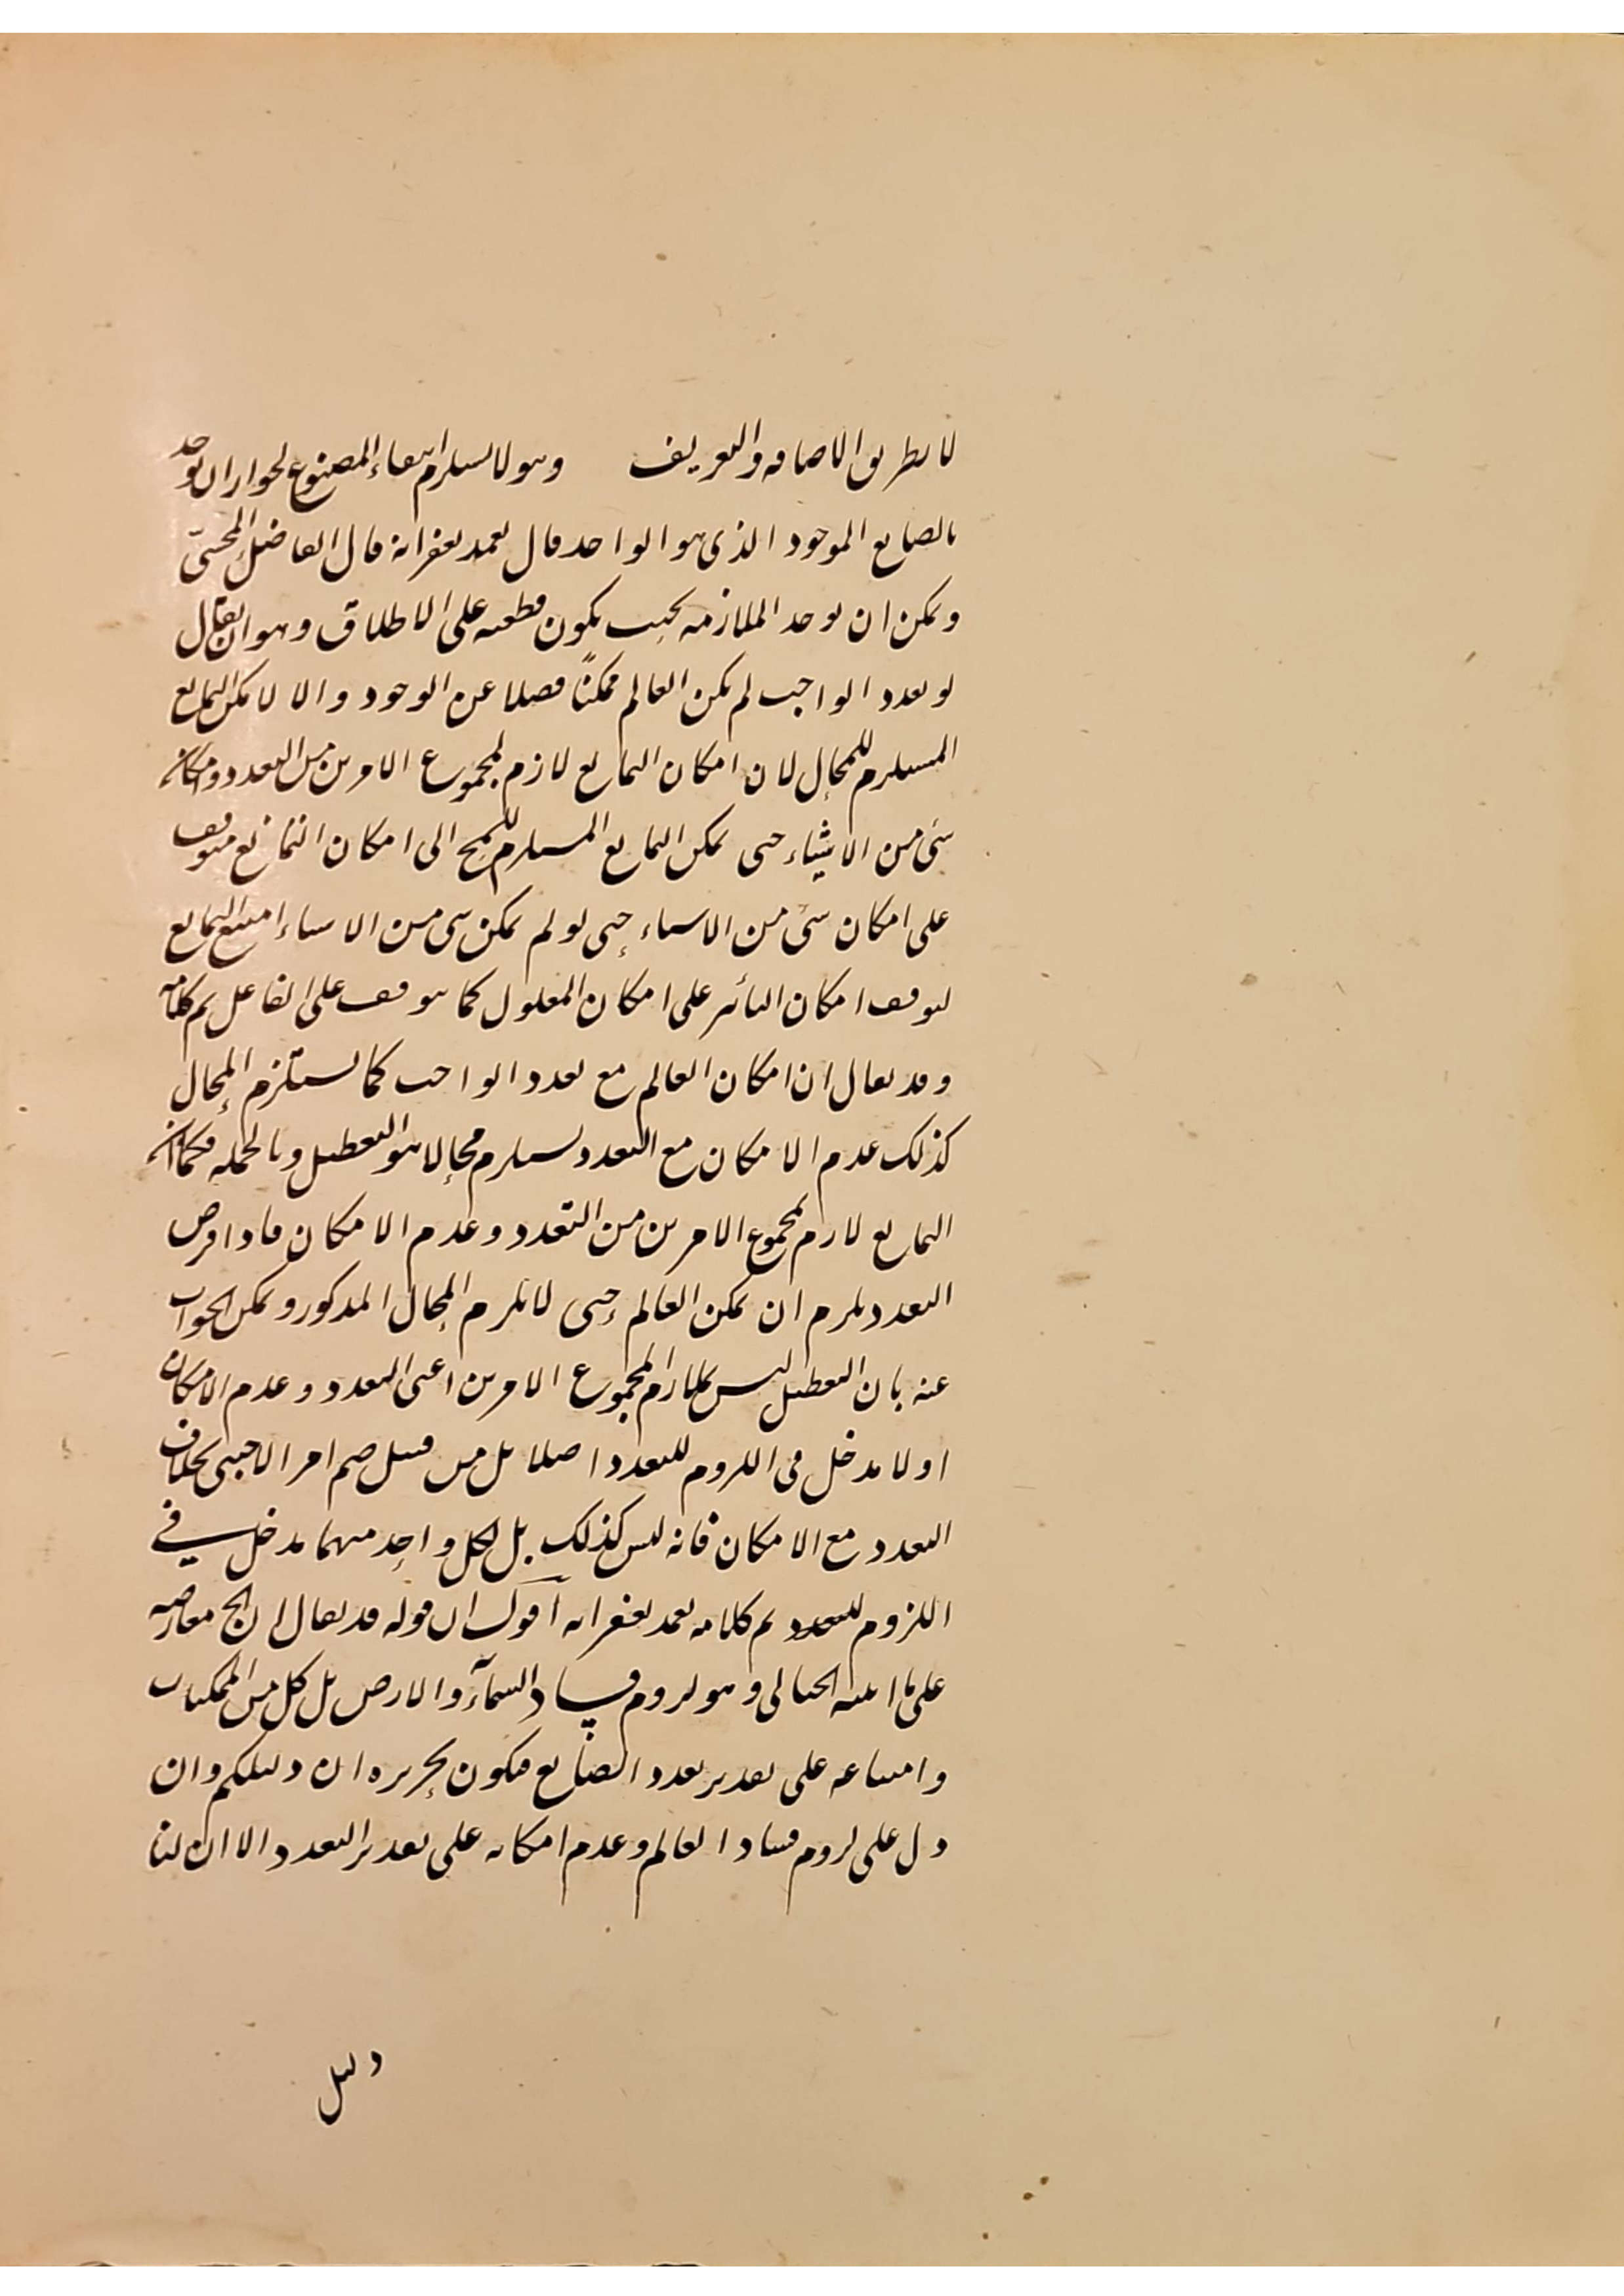 لا بطريق الاضافة والتعريف وهو لا يستلزم انتفاء المصنوع لجواز ان يوجد
بالصانع الموجود الذي هو الواحد قال تغمد بغفرانه قال الفاضل المحشّي
ويمكن ان توجد الملازمة بحيث يكون قطعية على الاطلاق وهو ان يقال
لو تعدد الواجب لم يكن العالم ممكنًا فضلا عن الوجود والا لامكن التمانع
المستلزم للمحال لان امكان التمانع لازم لمجموع الامرين من التعدد وامكان
شئ من الاشياء حتى يمكن التمانع المستلزم للمح الى امكان التمانع متوقف
على امكان شئ من الاشياء حتى لو لم يمكن شئ من الاشياء امتنع التمانع
لتوقف امكان التأثير على امكان المعلول كما يتوقف على الفاعل تم كلامه
وقد يقال ان امكان العالم مع تعدد الواجب كما يستلزم المحال
كذلك عدم الامكان مع التعدد يستلزم محالا هو التعطيل وبالجملة فكما ان
التمانع لازم لمجموع الامرين من التعدد وعدم الامكان فاذا فرض
التعدد يلزم ان يمكن العالم حتى لا يلزم المحال المذكور ويمكن الجواب
عنه بان التعطيل ليس بلازم لمجموع الامرين اعني التعدد وعدم الامكان
اولا مدخل في اللزوم للتعدد اصلا بل من قبيل ضم امر الاجنبي بخلاف
التعدد مع الامكان فانه ليس كذلك بل لكل واحد منهما مدخل في
اللزوم للتعدد تم كلامه تغمد بغفرانه اقول ان قوله قد يقال ان الخ معارضة
على ما اثبته الخيالي وهو لزوم فساد السمآء والارض بل كل من الممكنات
وامتناعه على تقدير تعدد الصانع فيكون تحريره ان دليلكم وان
دل على لزوم فساد العالم وعدم امكانه على تقدير التعدد الا ان لنا
دليل